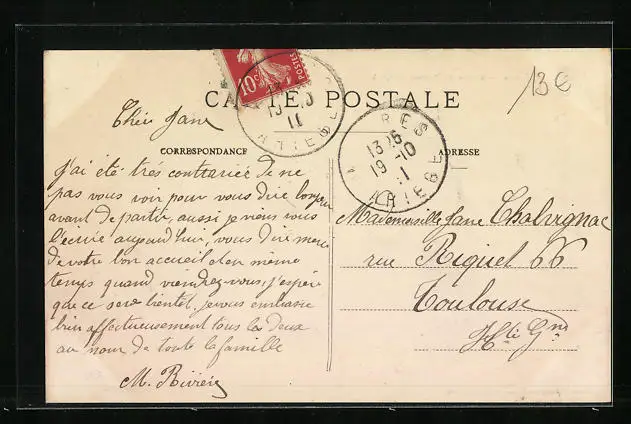 13€
POSTES
10c
CARTE POSTALE
Chère Jane
CORRESPONDANCE
ADRESSE
13 25
19 -10
11
ARIEGE
11
ARIEGE
J'ai été très contrariée de ne
pas vous voir pour vous dire bonjour
avant de partir, aussi je viens vous
l'écrire aujourd'hui, vous dire merci
de votre bon accueil et en même
temps quand viendrez-vous, j'espère
que ce sera bientôt, je vous embrasse
bien affectueusement tous les deux
au nom de toute la famille
M. Rivière
Mademoiselle Jane Chalvignac
rue Riquet 66
Toulouse
Hte Gne